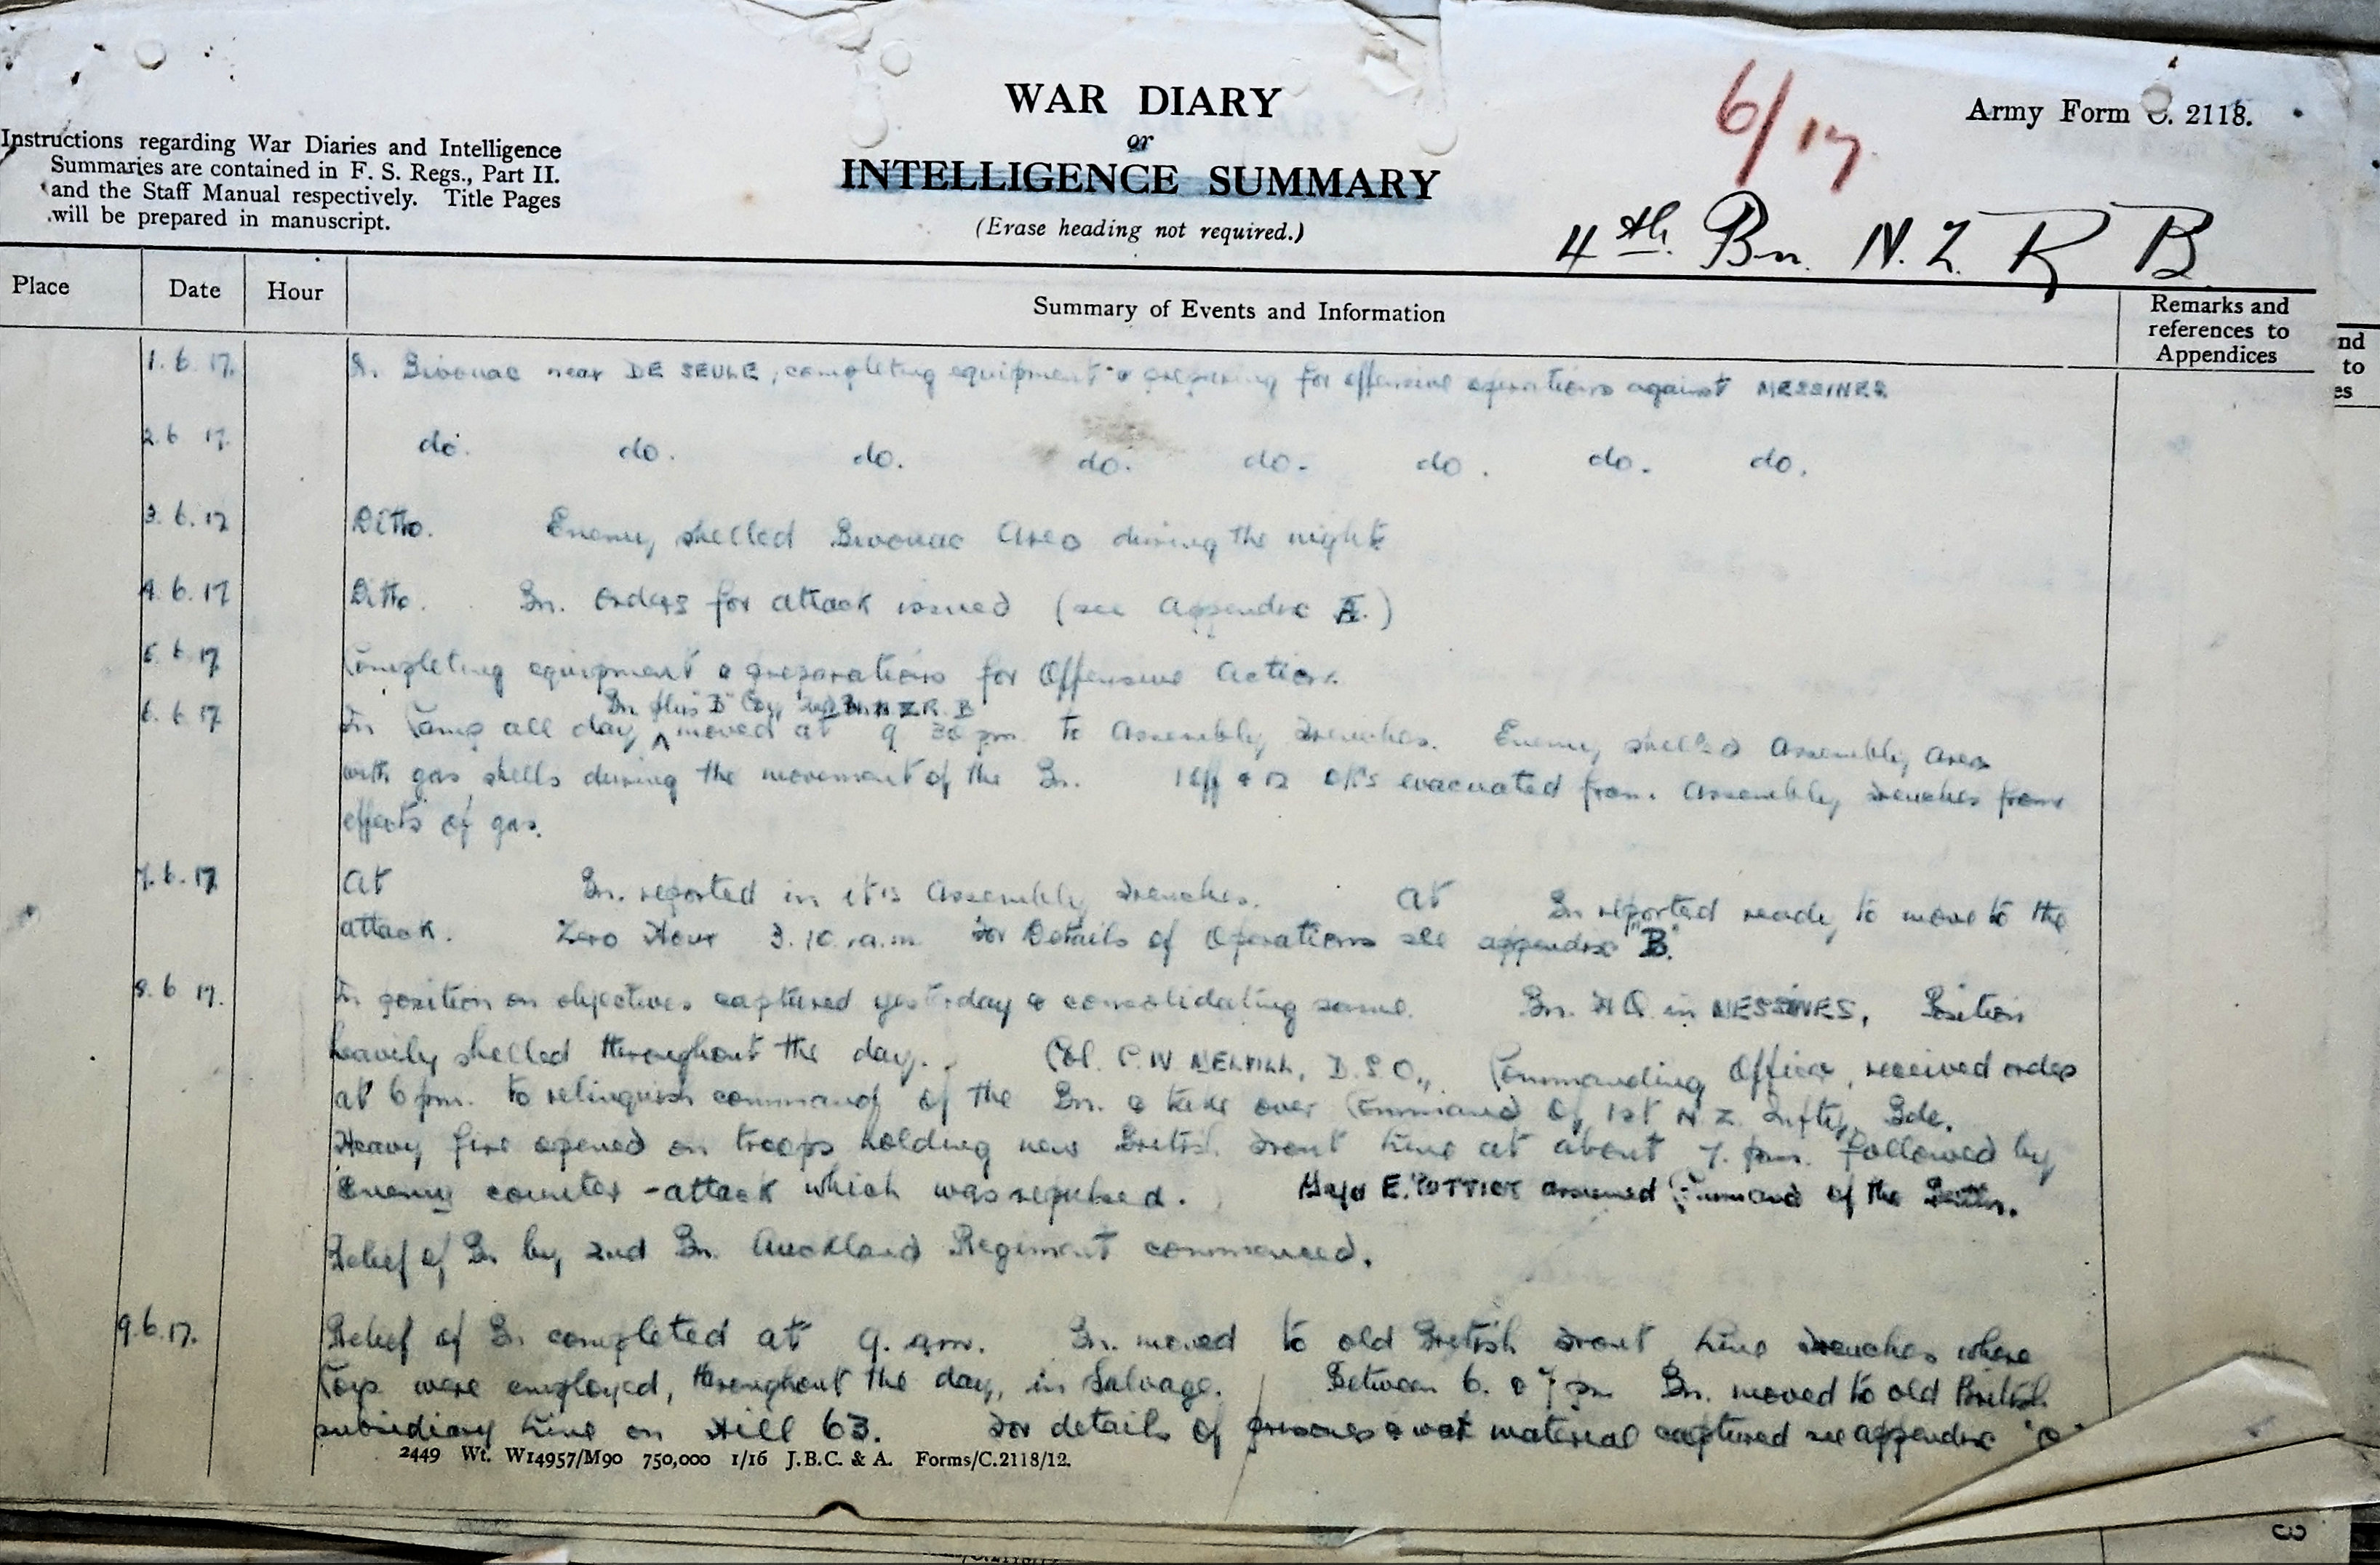 WAR DIARY
or
INTELLIGENCE SUMMARY
(Erase heading not required.)
Instructions regarding War Diaries and Intelligence
Summaries are contained in F. S. Regs., Part II.
and the Staff Manual respectively. Title Pages
will be prepared in manuscript.
6/17.
Army Form C. 2118.
4th. Bn. N.Z. R B
Place Date Hour Summary of Events and Information Remarks and
references to
Appendices
nd
to
es
1.6.17. Bivouac near DE SEULE, completing equipment & preparing for offensive operations against MESSINES
2.6 17. do. do. do. do. do. do. do. do.
3.6.17 Ditto. Enemy shelled Bivouac Area during the night
4.6.17 Ditto. Bn. Orders for attack issued (see Appendix A.)
5.6.17 Completing equipment & preparations for Offensive Action.
Bn plus "D" Coy, 2nd Bn N Z R. B
6.6.17 In Camp all day, moved at 9 30 pm to Assembly Trenches. Enemy shelled Assembly Area
with gas shells during the movement of the Bn. 1 Off & 12 O/R's evacuated from Assembly Trenches from
effects of gas.
7.6.17 At Bn. reported in it's Assembly Trenches. At Bn reported ready to move to the
attack. Zero Hour 3.10.a.m For Details of Operations see appendix "B."
8.6 17. In position on objectives captured yesterday & consolidating same. Bn. H Q in MESSINES, Position
heavily shelled throughout the day. Col. C.W MELVILL, D.S.O., Commanding Officer, received orders
at 6 pm. to relinquish command of the Bn. & take over Command Of 1st N.Z. Infty, Bde.
Heavy fire opened on troops holding new British Front Line at about 7. pm. followed by
Enemy counter-attack which was repulsed. Major E. PUTTICK assumed Command of the Battn.
Relief of Bn by 2nd Bn. Auckland Regiment commenced.
9.6.17. Relief of Bn completed at 9. am. Bn. moved to old British Front Line Trenches where
Coys were employed, throughout the day, in Salvage. Between 6. & 7 pm Bn. moved to old British
subsidiary Line on Hill 63. For details of prisoners & war material captured see appendix "C"
2449 Wt. W14957/M90 750,000 1/16 J.B.C. & A. Forms/C.2118/12.
3